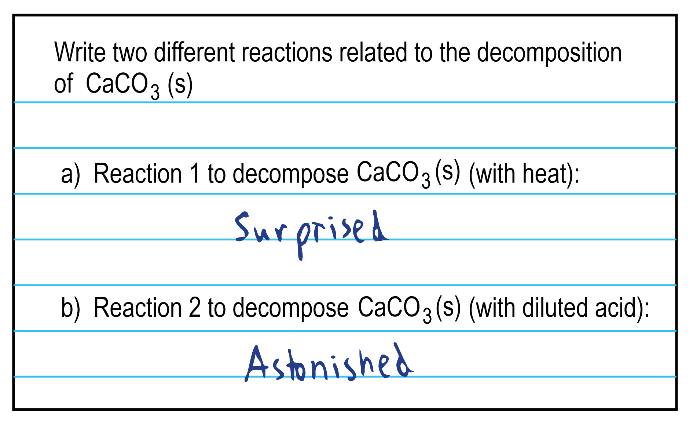 Write two different reactions related to the decomposition
of CaCO₃ (s)
a) Reaction 1 to decompose CaCO₃(s) (with heat):
Surprised
b) Reaction 2 to decompose CaCO₃(s) (with diluted acid):
Astonished